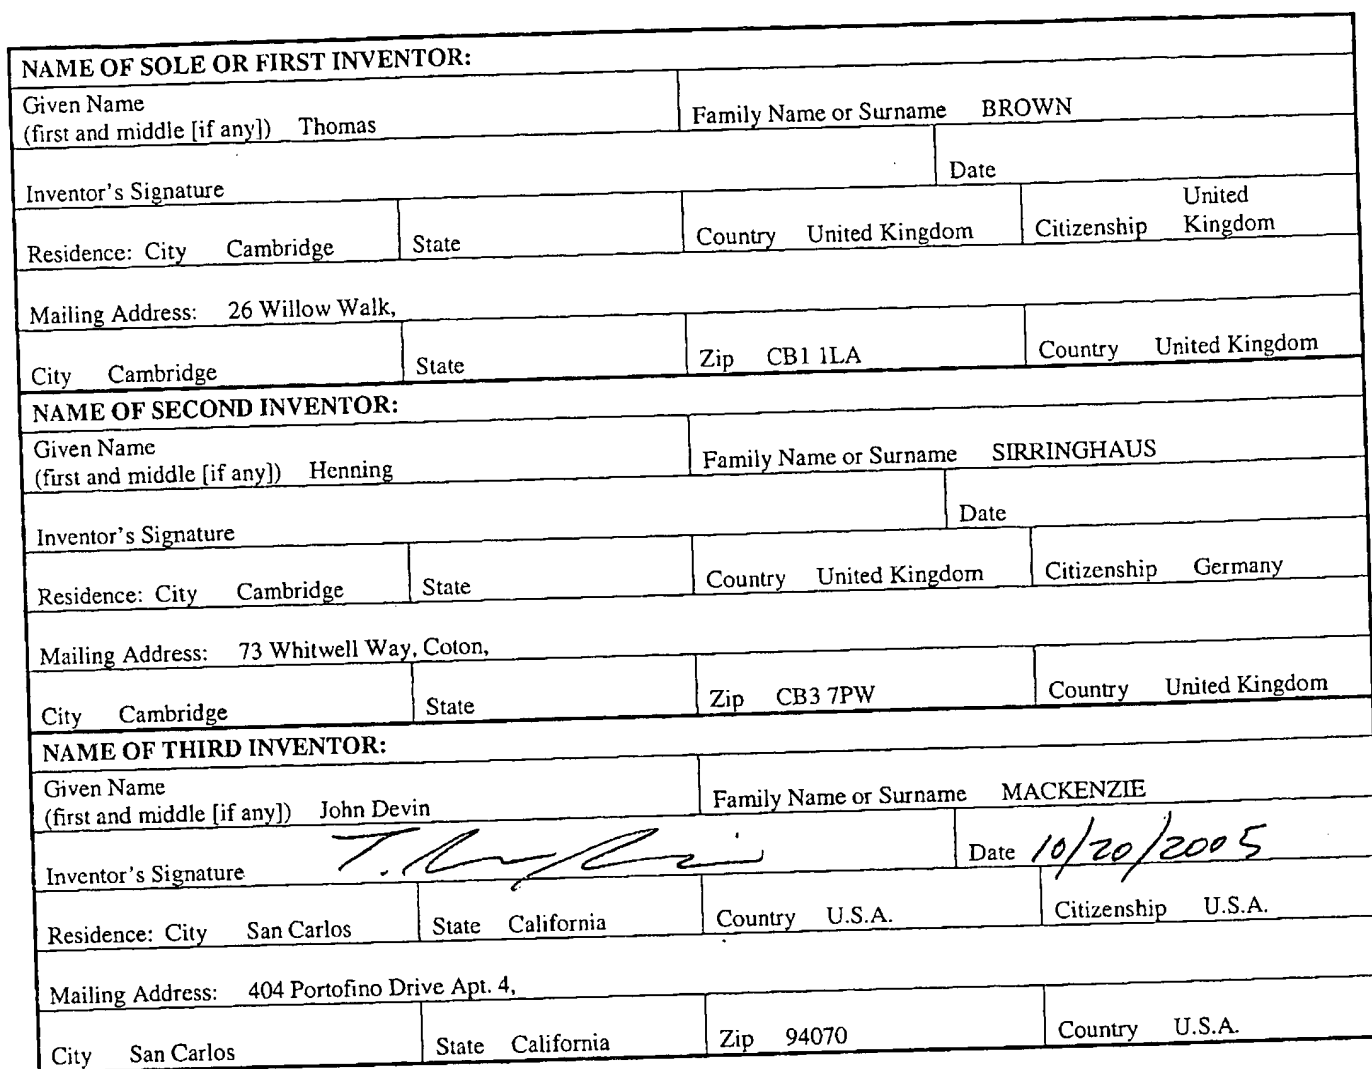 NAME OF SOLE OR FIRST INVENTOR:
Given Name
(first and middle [if any]) Thomas Family Name or Surname BROWN
Inventor's Signature Date
Residence: City Cambridge State Country United Kingdom Citizenship United Kingdom
Mailing Address: 26 Willow Walk,
City Cambridge State Zip CB1 1LA Country United Kingdom
NAME OF SECOND INVENTOR:
Given Name
(first and middle [if any]) Henning Family Name or Surname SIRRINGHAUS
Inventor's Signature Date
Residence: City Cambridge State Country United Kingdom Citizenship Germany
Mailing Address: 73 Whitwell Way, Coton,
City Cambridge State Zip CB3 7PW Country United Kingdom
NAME OF THIRD INVENTOR:
Given Name
(first and middle [if any]) John Devin Family Name or Surname MACKENZIE
Inventor's Signature Date 10/20/2005
Residence: City San Carlos State California Country U.S.A. Citizenship U.S.A.
Mailing Address: 404 Portofino Drive Apt. 4,
City San Carlos State California Zip 94070 Country U.S.A.